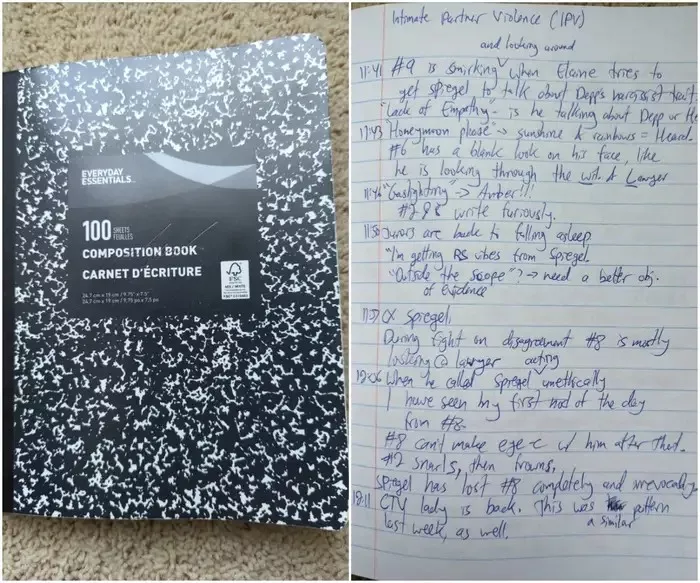 EVERYDAY
ESSENTIALS
100 SHEETS
FEUILLES
COMPOSITION BOOK
CARNET D'ÉCRITURE
24.7 cm x 19 cm / 9.75" x 7.5"
24,7 cm x 19 cm / 9,75 po x 7,5 po
FSC
Intimate Partner Violence (IPV)
and looking around
11:41 #9 is smirking when Elaine tries to
get spiegel to talk about Depp's narcissist trait
"Lack of Empathy" - is he talking about Depp or He
Honeymoon phase → sunshine & rainbows = Heard.
#6 has a blank look on his face, like
he is looking through the wit. & Lawyer
"Gaslighting" → Amber!!!
#2 & 8 write furiously.
11:50 Jurors are back to falling asleep
"I'm getting RS vibes from Spiegel.
"Outside the scope"? → need a better obj.
of evidence
Spiegel.
During fight on disagreement #8 is mostly
looking @ lawyer
acting
When he called Spiegel unethically
I have seen my first nod of the day
from #8.
#8 can't make eye c w/ him after that.
#2 snarls, then frowns.
Spiegel has lost #8 completely and irrevocably
CTV lady is back. This was pattern
a similar
last week, as well.